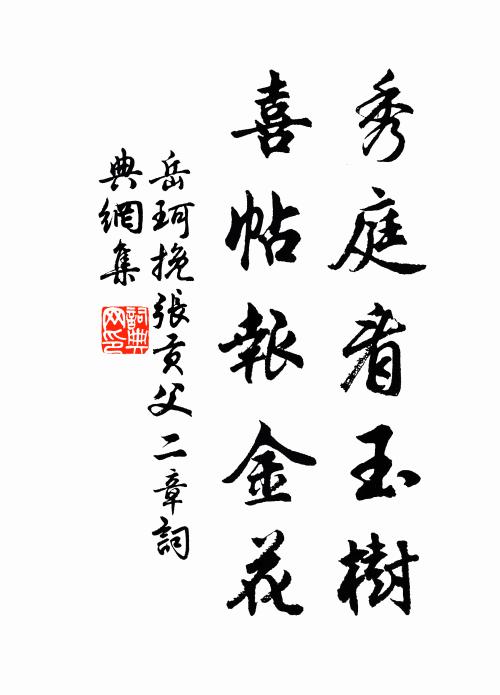 秀庭看玉樹
喜帖報金花
岳珂挽張貢父二章詞
典網集
詞典
网印